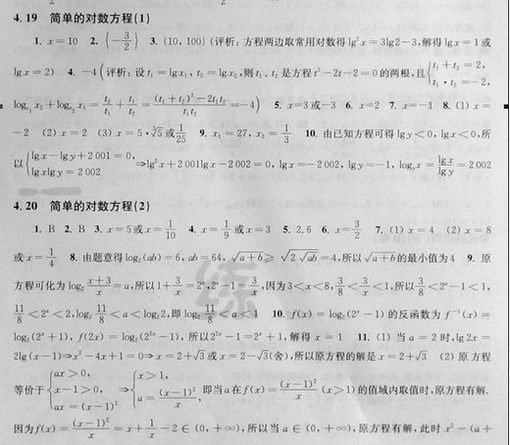 4.19 简单的对数方程(1)
1. x=10 2. {-3/2} 3. (10,100) (评析:方程两边取常用对数得 lg²x=3lg2-3,解得 lgx=1 或
lgx=2) 4. -4 (评析:设 t₁=lgx₁,t₂=lgx₂,则 t₁、t₂ 是方程 t²-2t-2=0 的两根,且{t₁+t₂=2, t₁·t₂=-2,
logₓ₁x₂+logₓ₂x₁=t₂/t₁+t₁/t₂=((t₁+t₂)²-2t₁t₂)/(t₁t₂)=-4) 5. x=3 或 -3 6. x=2 7. x=-1 8. (1) x=
-2 (2) x=2 (3) x=5·⁵√5 或 1/25 9. x₁=27, x₂=1/3 10. 由已知方程可得 lgy<0, lgx<0,所
以{lgx-lgy+2001=0, lgxlgy=2002 ⇒lg²x+2001lgx-2002=0, lgx=-2002, lgy=-1, logᵧx=lgx/lgy=2002
4.20 简单的对数方程(2)
1. B 2. B 3. x=5 或 x=1/10 4. x=1/9 或 x=3 5. 2,6 6. x=3/2 7. (1) x=4 (2) x=8
或 x=1/4 8. 由题意得 log₂(ab)=6, ab=64, √(a+b)≥√(2√ab)=4,所以√(a+b)的最小值为 4 9. 原
方程可化为 log₂(x+3)/x=a,所以 1+3/x=2ᵃ, 2ᵃ-1=3/x,因为 3<x<8, 3/8<3/x<1,所以 3/8<2ᵃ-1<1,
11/8<2ᵃ<2, log₂11/8<a<log₂2,即 log₂11/8<a<1 10. f(x)=log₂(2ˣ-1) 的反函数为 f⁻¹(x)=
log₂(2ˣ+1), f(2x)=log₂(2²ˣ-1),所以 2²ˣ-1=2ˣ+1,解得 x=1 11. (1) 当 a=2 时,lg2x=
2lg(x-1)⇒x²-4x+1=0⇒x=2+√3 或 x=2-√3(舍),所以原方程的解是 x=2+√3 (2) 原方程
等价于{ax>0, x-1>0, ax=(x-1)² ⇒{x>1, a=(x-1)²/x, 即当 a 在 f(x)=(x-1)²/x (x>1) 的值域内取值时,原方程有解.
因为 f(x)=(x-1)²/x=x+1/x-2∈(0,+∞),所以当 a∈(0,+∞),原方程有解,此时 x²-(a+